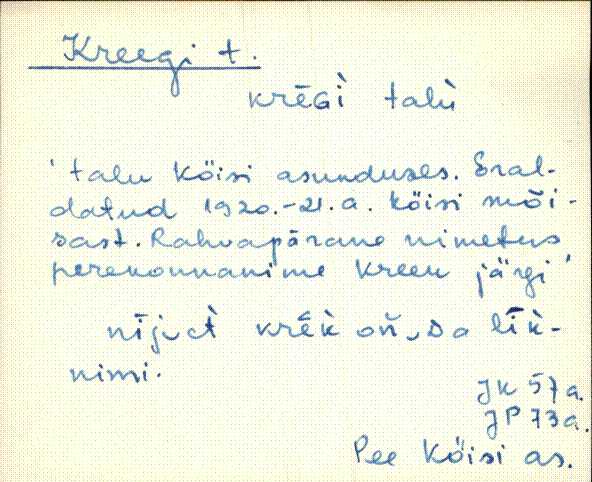 Kreegi t.
krēGi talù
'talu Köisi asunduses. Eral-
datud 1920.-21.a. Köisi mõi-
sast. Rahvapärane nimetus
perekonnanime Kreek järgi'
krēk oń, sa līk-
nimi.
JK 57a.
JP 73a.
Pee Köisi as.